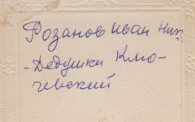 Розанов Иван Ник.
- Дедушка Клю-
чевский